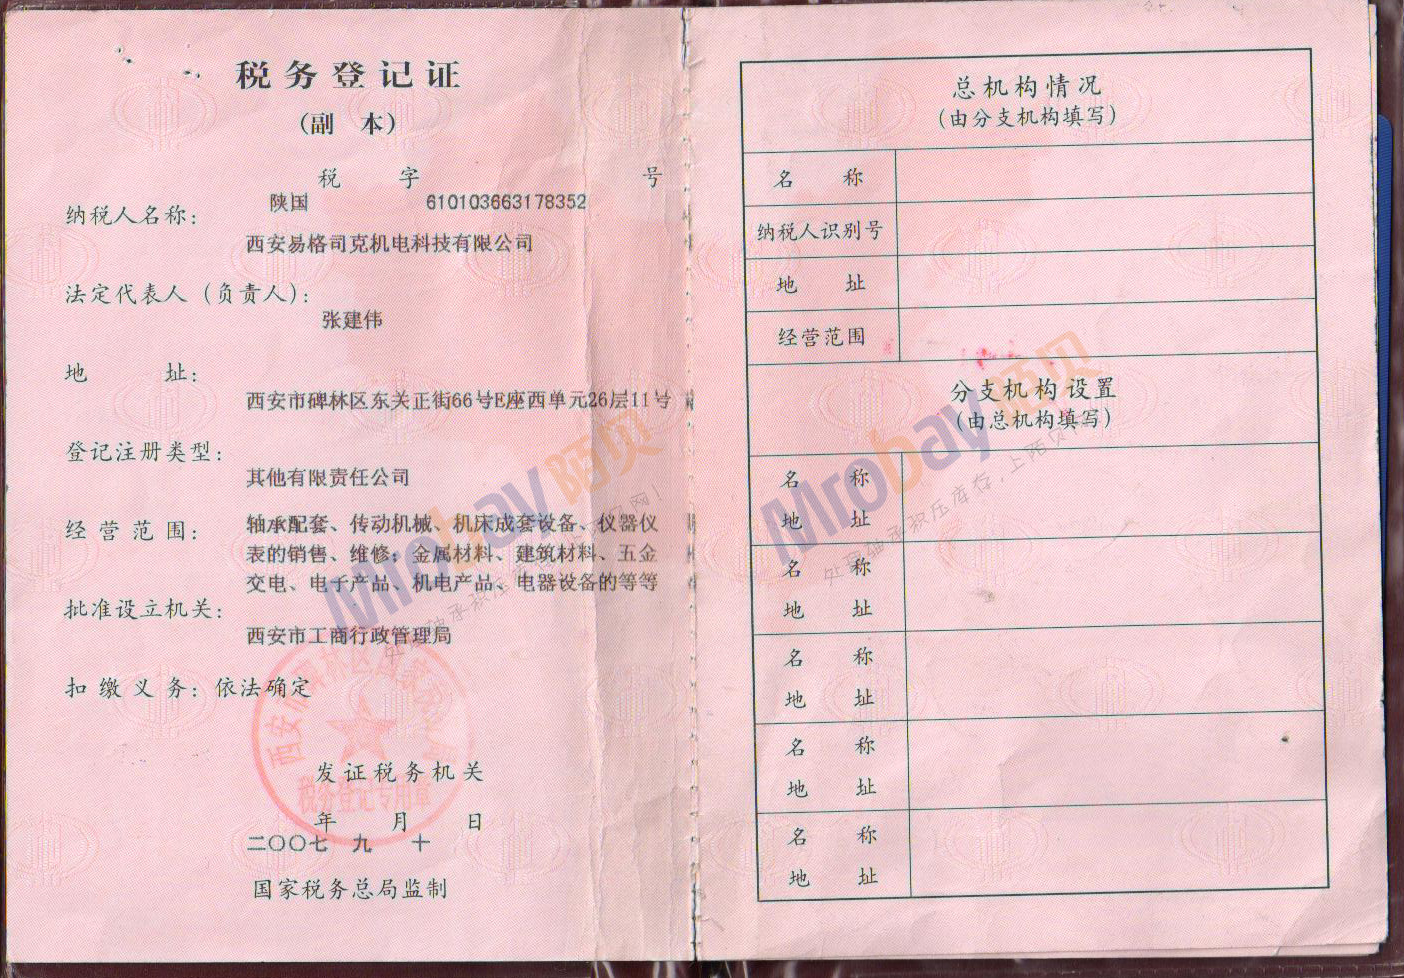 税务登记证
(副 本)
税 字 号
陕国 610103663178352
纳税人名称:
西安易格司克机电科技有限公司
法定代表人 (负责人):
张建伟
地 址:
西安市碑林区东关正街66号E座西单元26层11号
登记注册类型:
其他有限责任公司
经营范围:
轴承配套、传动机械、机床成套设备、仪器仪
表的销售、维修; 金属材料、建筑材料、五金
交电、电子产品、机电产品、电器设备的等等
批准设立机关:
西安市工商行政管理局
扣缴义务: 依法确定
发证税务机关
年 月 日
二〇〇七 九 十
国家税务总局监制
税务登记专用章
Mrobay陌贝
总机构情况
(由分支机构填写)
名 称
纳税人识别号
地 址
经营范围
分支机构设置
(由总机构填写)
名 称
地 址
名 称
地 址
名 称
地 址
名 称
地 址
名 称
地 址
Mrobay陌贝